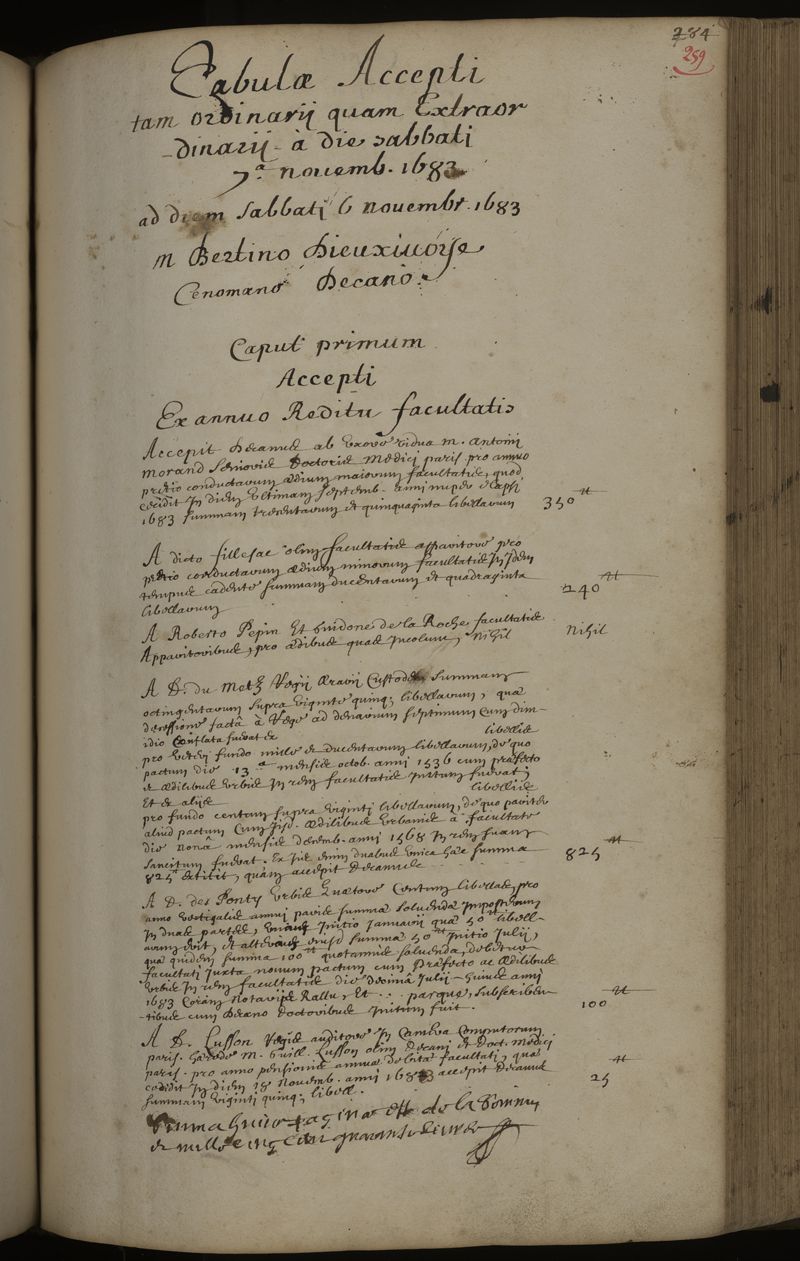 284
259
Tabulæ Accepti
tam ordinarij quam Extraor
-dinarij - à die sabbati
7.ª novemb. 1683
ad diem sabbati 6 novembr. 1683
M Bertino Dieuxiuoÿe
Cenomano Decano.
Caput primum
Accepti
Ex annuo Reditu facultatis
Accepit Decanus ab uxore vidua m. Antonij
Morand Doctoris Medici paris. pro annuo
pretio conductarum ædium maiorum facultatis, quod
cecidit In diem ultimam septemb. anni nuper elapsi
1683 summam trecentarum et quinquaginta libellarum
350 tt
A dicto fillesac olim facultatis apparitore pro
pretio conductarum ædium minorum facultatis In Idem
tempus cadente summam ducentarum et quadraginta
libellarum
240 tt
A Roberto Pepin Et Guidone de la Roche facultatis
Apparitoribus, pro ædibus quas Incolunt, Nihil
Nihil
A D. du Metz Regij ærarij Custode summam
octingentarum supra viginti quinq; libellarum, quæ
factâ à Rege ad denarium septimum cum dim-
idio Conflata fuerat ex libellis
pro veteri fundo mille et ducentarum libellarum, de quo
pactum die 13.ª mensis octob. anni 1536 cum præfecto
et ædilibus urbis In rem facultatis Initum fuerat;
Et ex alijs libellis
pro fundo centum supra viginti libellarum, de quo pariter
aliud pactum cum ijsd. ædilibus urbanis a facultate
die nonâ mensis decemb. anni 1568 In rem suam
sancitum fuerat. Ex Ijs enim duabus unica hæc summa
825 tt extitit, quam accepit Decanus
825 tt
A D. des Ponty urbis Quæstore Centum libellas, pro
anno vectigalis annui paris summæ soluendæ
In duas partes, unius Initio Januarij quæ 50 tt libell-
arum erit, et alterius eiusd summæ 50 tt Initio Julij,
quæ quidem summa 100 tt quotannis soluenda, debetur
facultati Juxta nouum pactum cum Præfecto ac ædilibus
urbis In rem facultatis die decima Julij huius anni
1683 Coram Notarijs Rallu, Et . . . parque, subscriben-
-tibus cum Decano Doctoribus Initum fuit.
100 tt
A D. Lusson Regis auditore In Camera Computorum
paris. hærede M. Guill. Lusson olim Decani et Doct. Medici
paris. pro anno pensionis annuæ debitæ facultati, quæ
cecidit In diem 18 Novemb. anni 1683 accepit Decanus
summam viginti quinq; libell.
25 tt
Summa huius paginæ est de la somme
de mille cinq cen quarante liures